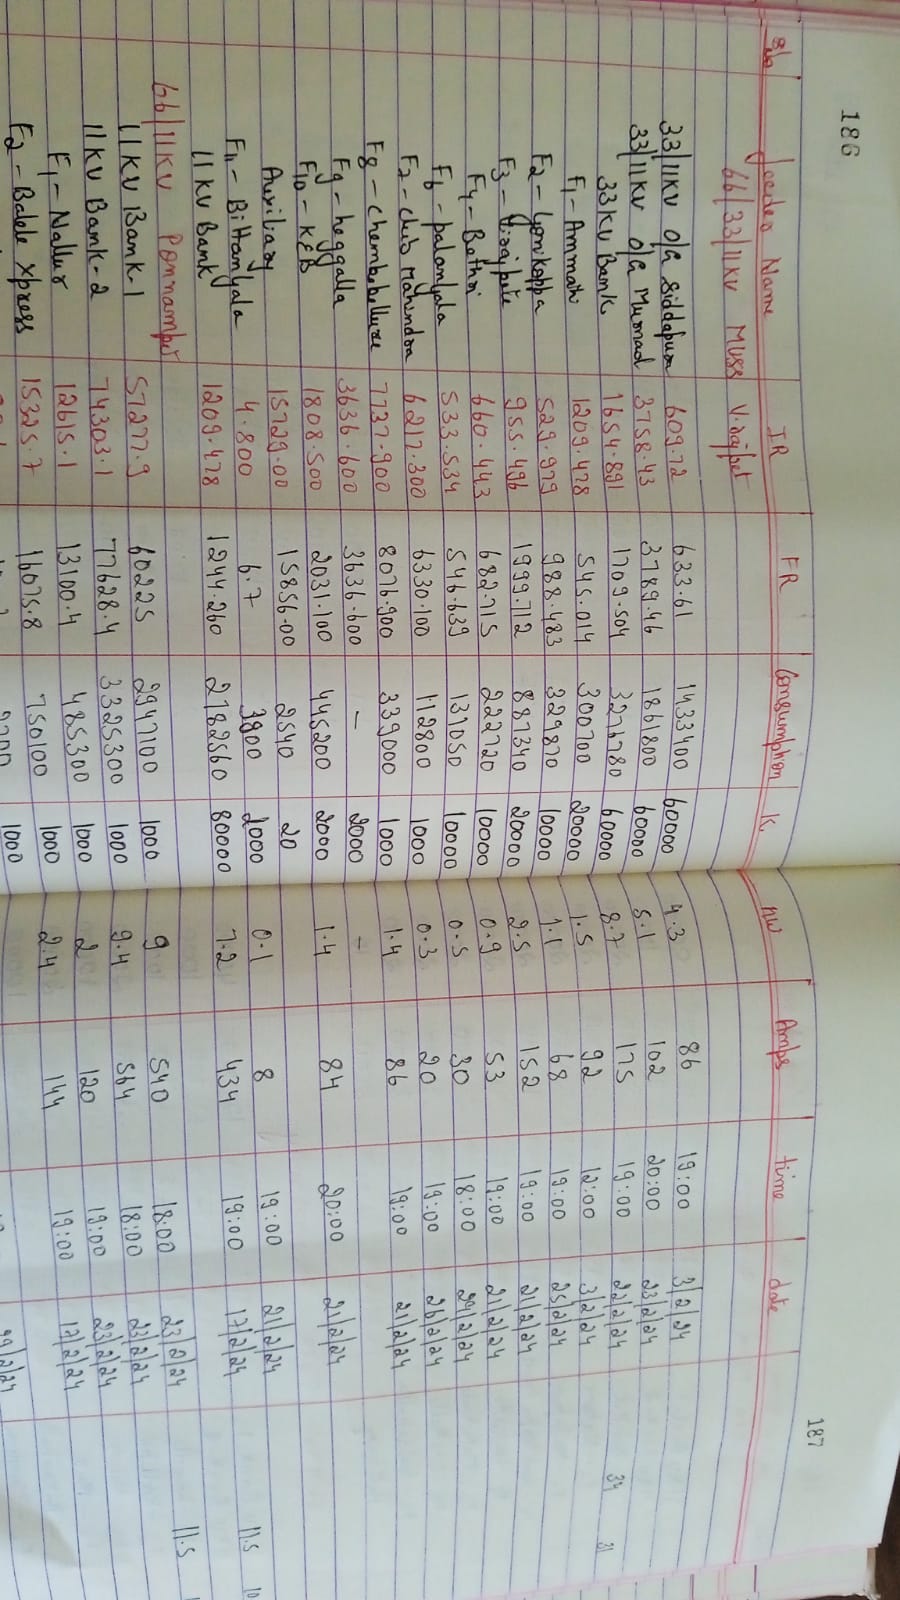 186
187
Feeder Name IR FR Consumption K MW Amps time date
66/33/11KV MUSS Virajpet
33/11KV O/G Siddapura 609.72 633.61 1433400 60000 4.3 86 19:00 3/2/24
33/11KV O/G Murnad 3758.43 3789.46 1861800 60000 5.1 102 20:00 23/2/24
33KV Bank 1654.891 1709.504 3276780 60000 8.7 175 19:00 22/2/24
F1 - Ammathi 1209.478 545.014 300700 20000 1.5 92 12:00 3/2/24
F2 - 529.979 988.483 329870 10000 1.1 68 19:00 25/2/24
F3 - Virajpete 955.496 1999.712 887340 20000 2.5 152 19:00 21/2/24
F4 - Bethri 660.443 682.715 222720 10000 0.9 53 19:00 21/2/24
F6 - palangala 533.534 546.639 131050 10000 0.5 30 18:00 29/2/24
F7 - club Mahindra 6217.300 6330.100 112800 1000 0.3 20 19:00 26/2/24
F8 - chembebellure 7737.900 8076.900 339000 1000 1.4 86 19:00 21/2/24
F9 - heggalla 3636.600 3636.600 - 2000 -
F10 - KEB 1808.500 2031.100 445200 2000 1.4 84 20:00 21/2/24
Auxiliary 15729.00 15856.00 2540 20
F11 - Bittangala 4.800 6.7 3800 2000 0.1 8 19:00 21/2/24
11KV Bank 1209.478 1244.260 2782560 80000 7.2 434 19:00 17/2/24 11.5 10
66/11KV Ponnampet
11KV Bank-1 57277.9 60225 2947100 1000 9 540 18:00 23/2/24 11.5
11KV Bank-2 74303.1 77628.4 3325300 1000 9.4 564 18:00 23/2/24
F1 - Nallur 12615.1 13100.4 485300 1000 2 120 19:00 23/2/24
F2 - Balele Xpress 15325.7 16075.8 750100 1000 2.4 144 19:00 17/2/24
1000
34 31